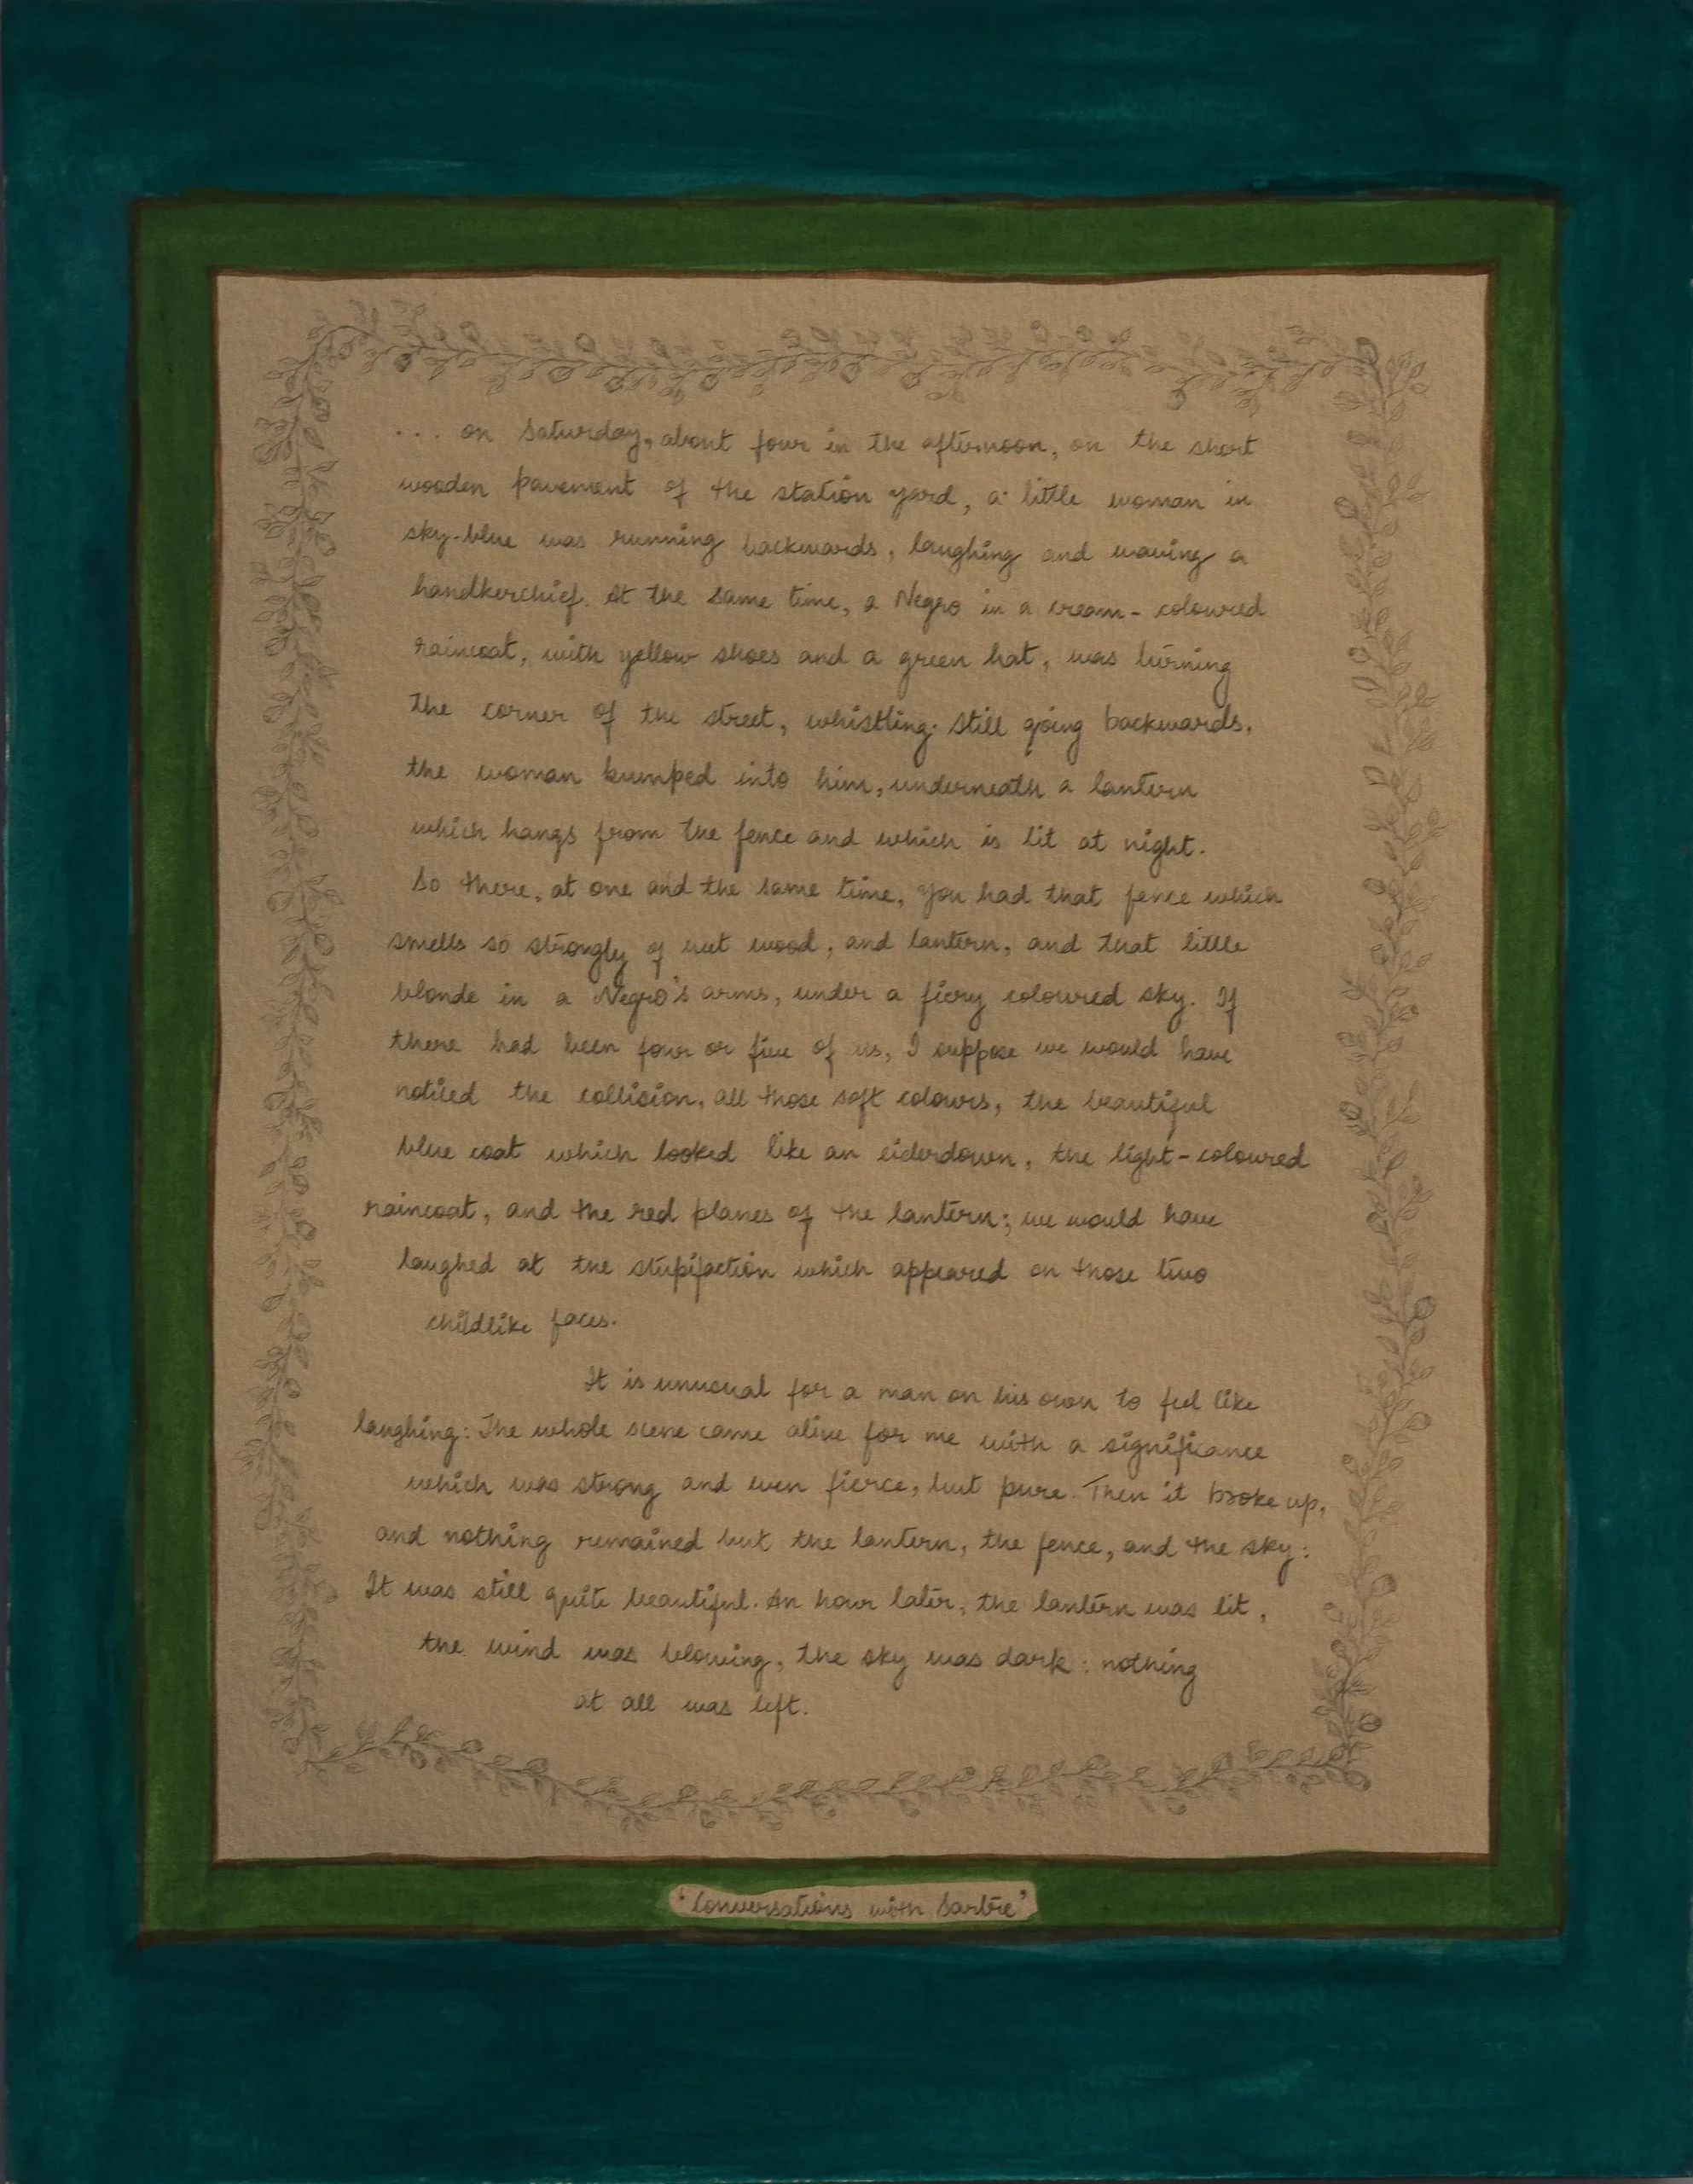 ... on Saturday, about four in the afternoon, on the short
wooden pavement of the station yard, a little woman in
sky-blue was running backwards, laughing and waving a
handkerchief. At the same time, a Negro in a cream-coloured
raincoat, with yellow shoes and a green hat, was turning
the corner of the street, whistling. Still going backwards,
the woman bumped into him, underneath a lantern
which hangs from the fence and which is lit at night.
So there, at one and the same time, you had that fence which
smells so strongly of wet wood, and lantern, and that little
blonde in a Negro's arms, under a fiery coloured sky. If
there had been four or five of us, I suppose we would have
noticed the collision, all those soft colours, the beautiful
blue coat which looked like an eiderdown, the light-coloured
raincoat, and the red planes of the lantern; we would have
laughed at the stupifaction which appeared on those two
childlike faces.
It is unusual for a man on his own to feel like
laughing: The whole scene came alive for me with a significance
which was strong and even fierce, but pure. Then it broke up,
and nothing remained but the lantern, the fence, and the sky:
It was still quite beautiful. An hour later, the lantern was lit,
the wind was blowing, the sky was dark: nothing
at all was left.
'Conversations with Sartre'